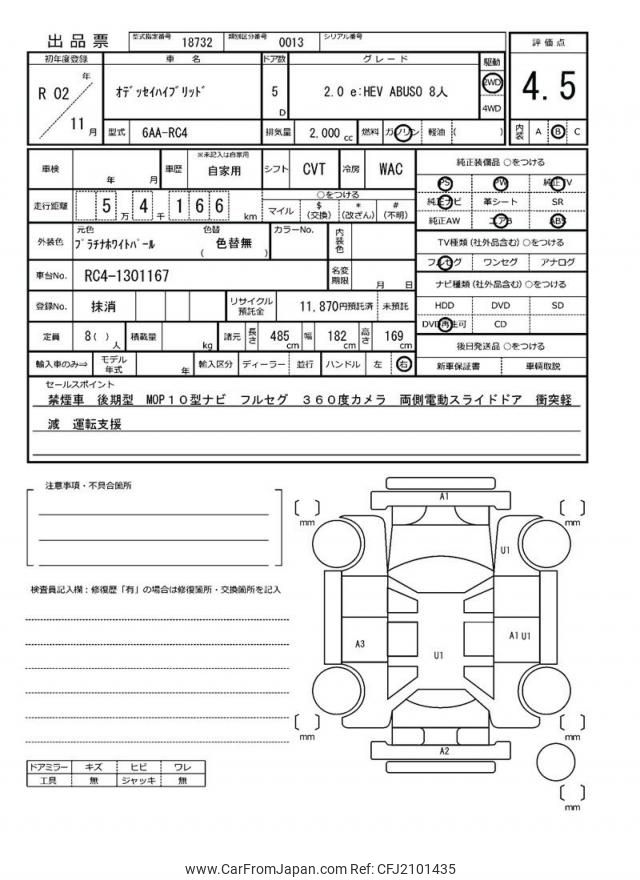 出品票 型式指定番号 18732 類別区分番号 0013 シリアル番号
評価点
4.5
内装 A B C
初年度登録 車名 ドア数 グレード 駆動
R 02 年 11 月
ｵﾃﾞｯｾｲﾊｲﾌﾞﾘｯﾄﾞ 5 D 2.0 e:HEV ABUSO 8人 2WD
4WD
型式 6AA-RC4 排気量 2,000 cc 燃料 ガソリン 軽油 ( )
車検 年 月 車歴 ※未記入は自家用 自家用 シフト CVT 冷房 WAC
走行距離 5 万 4 千 1 6 6 km
○をつける
マイル $ (交換) * (改ざん) # (不明)
外装色 元色 ﾌﾟﾗﾁﾅﾎﾜｲﾄﾊﾟｰﾙ 色替 ( 色替無 ) カラーNo. 内装色
車台No. RC4-1301167 名変期限 月 日
登録No. 抹消 リサイクル預託金 11,870円預託済 未預託
定員 8( ) 人 積載量 kg 諸元 長さ 485 cm 幅 182 cm 高さ 169 cm
輸入車のみ⇒ モデル年式 年 輸入区分 ディーラー 並行 ハンドル 左 右
純正装備品 ○をつける
PS PW 純正TV
純正ナビ 革シート SR
純正AW エアB ABS
TV種類 (社外品含む) ○をつける
フルセグ ワンセグ アナログ
ナビ種類 (社外品含む) ○をつける
HDD DVD SD
DVD再生可 CD
後日発送品 ○をつける
新車保証書 車輌取説
セールスポイント
禁煙車 後期型 MOP１０型ナビ フルセグ ３６０度カメラ 両側電動スライドドア 衝突軽
減 運転支援
注意事項・不具合箇所
検査員記入欄：修復歴「有」の場合は修復箇所・交換箇所を記入
ドアミラー キズ ヒビ ワレ
工具 無 ジャッキ 無
A1
[ ] mm
[ ] mm
U1
A3
U1
A1 U1
[ ] mm
[ ] mm
A2
[ ] mm
www.CarFromJapan.com Ref: CFJ2101435